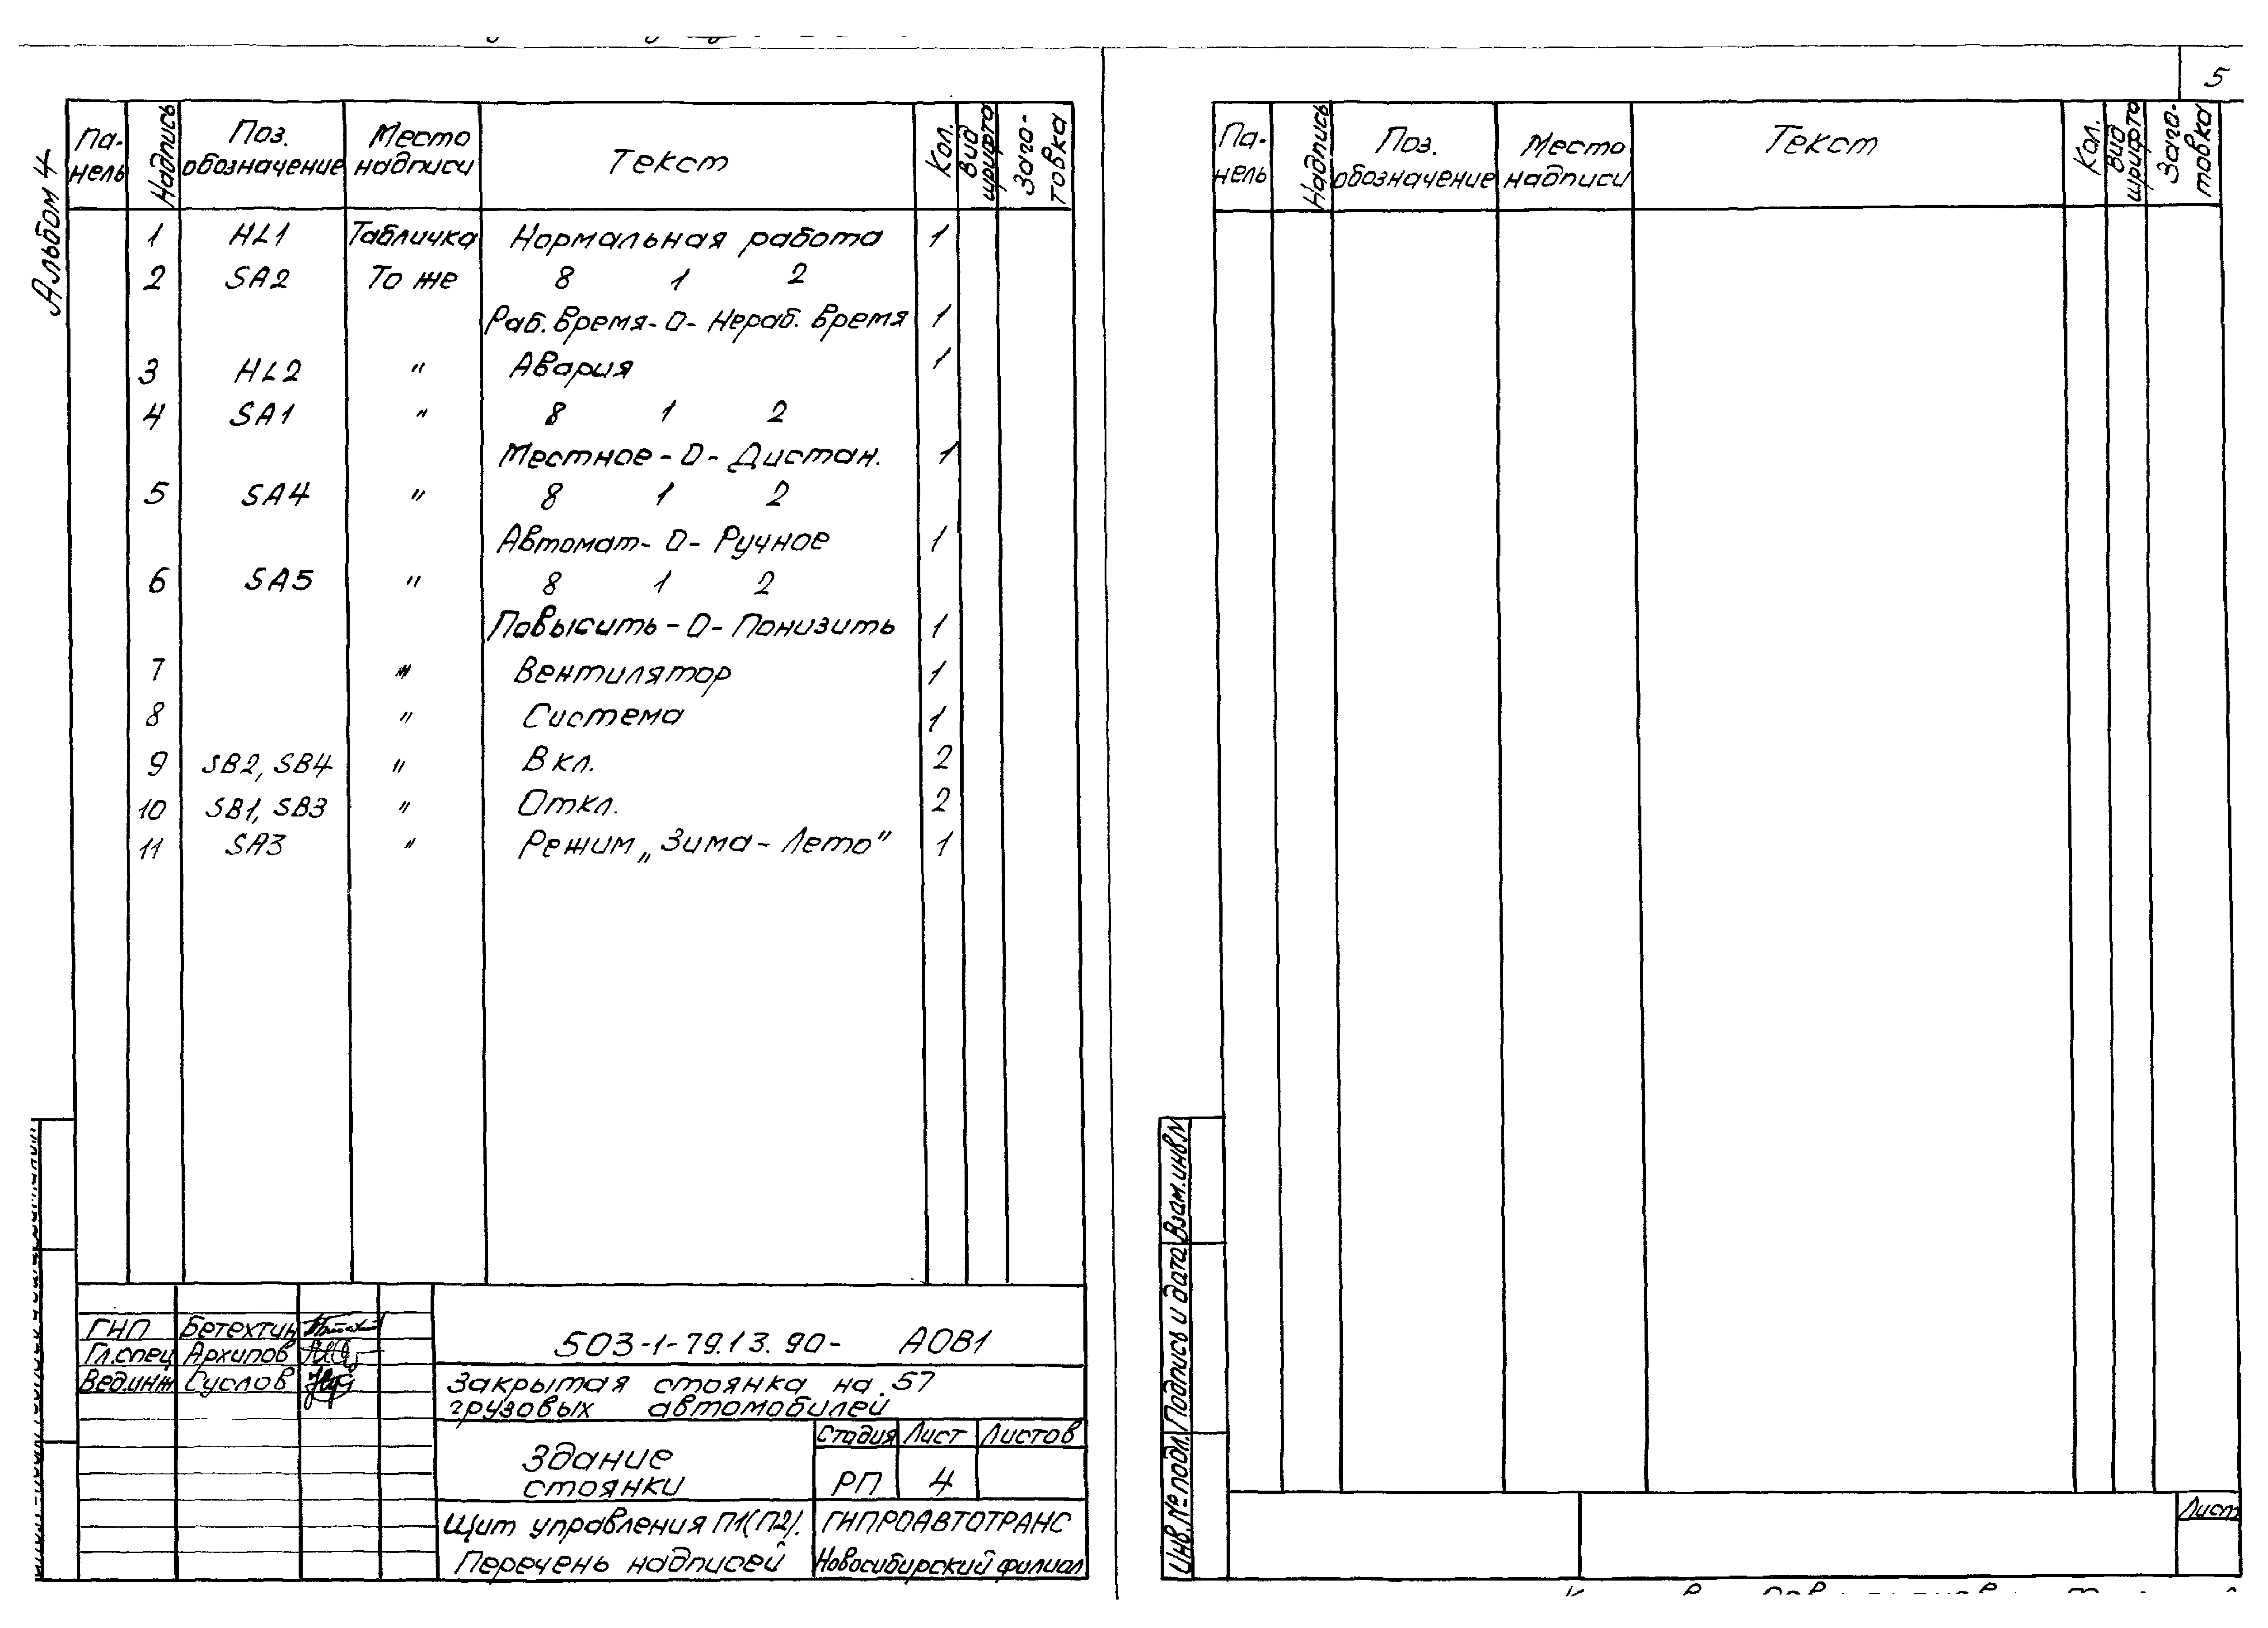 5
Альбом 4
Па-
нель
Надпись
Поз.
обозначение
Место
надписи
Текст
Кол.
Вид
шрифта
Заго-
товка
1 HL1 Табличка Нормальная работа 1
2 SA2 То же 8 1 2
Раб. время - 0 - Нераб. время 1
3 HL2 " Авария 1
4 SA1 " 8 1 2
Местное - 0 - Дистан. 1
5 SA4 " 8 1 2
Автомат - 0 - Ручное 1
6 SA5 " 8 1 2
Повысить - 0 - Понизить 1
7 " Вентилятор 1
8 " Система 1
9 SB2, SB4 " Вкл. 2
10 SB1, SB3 " Откл. 2
11 SA3 " Режим „Зима - Лето" 1
ГИП Бетехтин
Гл.спец Архипов
Вед.инж Суслов
503-1-79.13.90- АОВ1
Закрытая стоянка на 57
грузовых автомобилей
Здание
стоянки
Стадия Лист Листов
РП 4
Щит управления П1(П2).
Перечень надписей
ГИПРОАВТОТРАНС
Новосибирский филиал
Па-
нель
Надпись
Поз.
обозначение
Место
надписи
Текст
Кол.
Вид
шрифта
Заго-
товка
Инв.№ подл. Подпись и дата Взам.инв.N
Лист